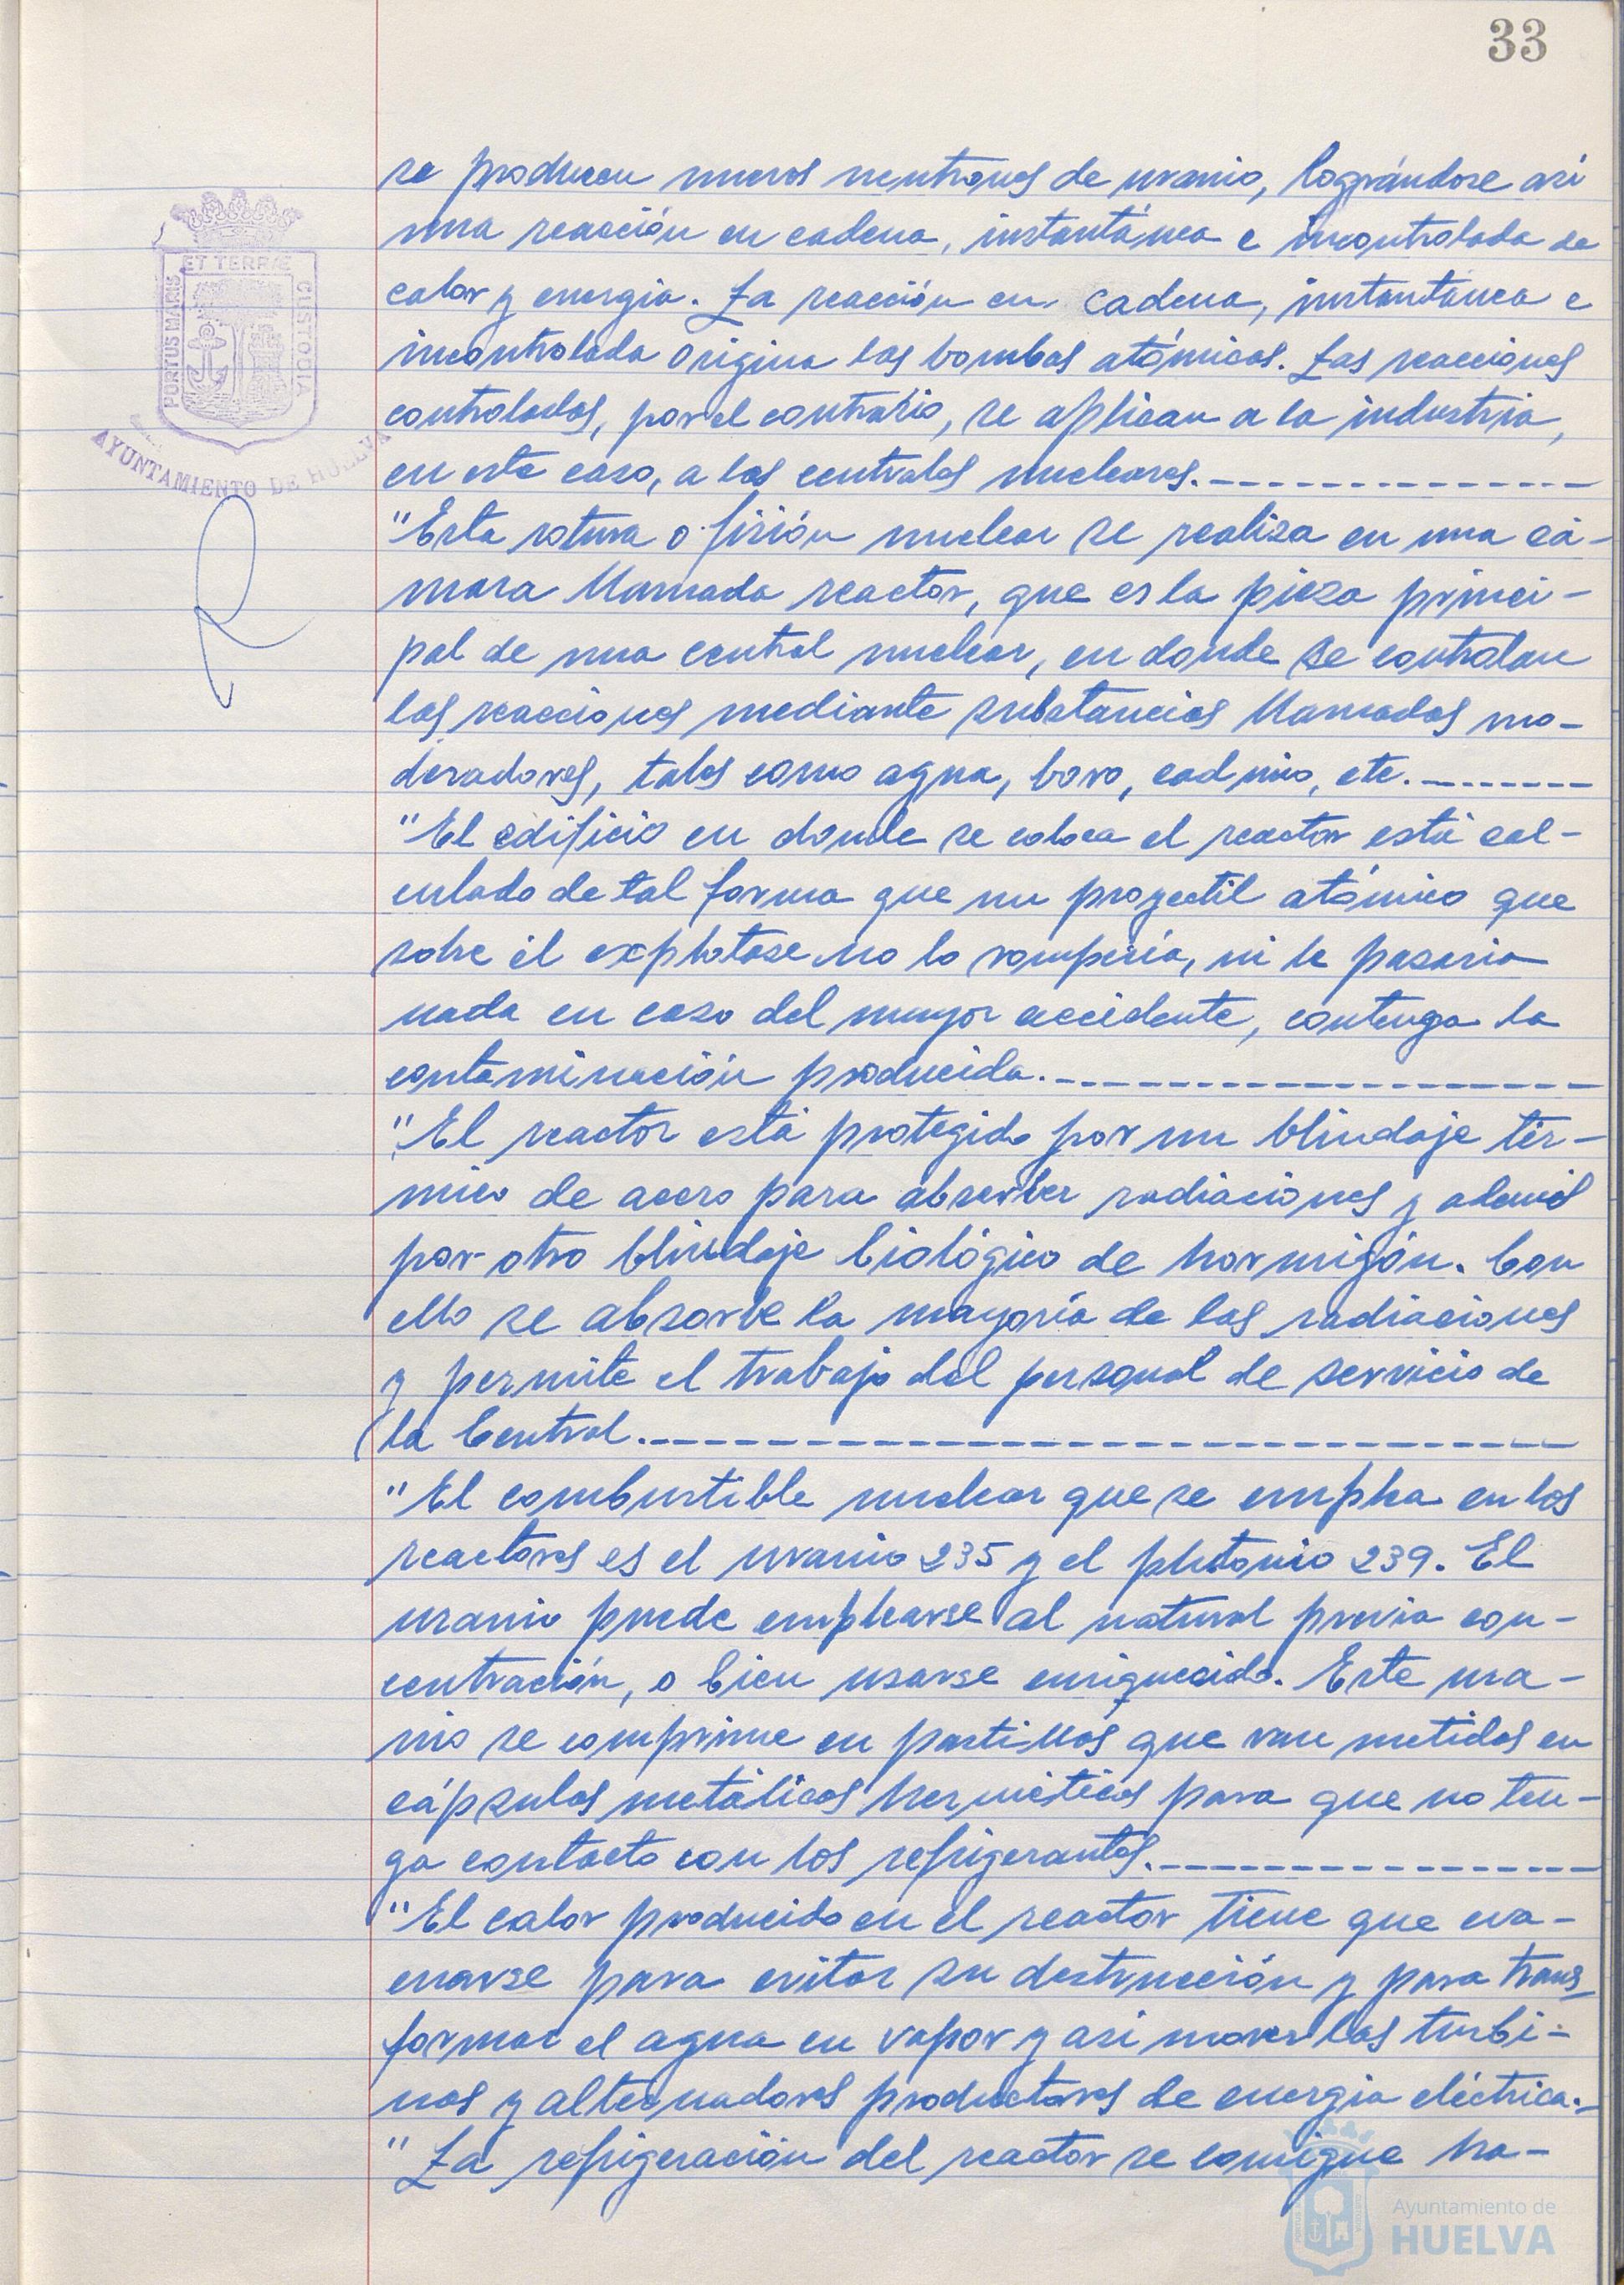 33
se producen nuevos neutrones de uranio, lográndose así
una reacción en cadena, instantánea e incontrolada de
calor y energia. La reacción en cadena, instantánea e
incontrolada origina las bombas atómicas. Las reacciones
controladas, por el contrario, se aplican a la industria,
en este caso, a las centrales nucleares.
"Esta rotura o fisión nuclear se realiza en una cá-
mara llamada reactor, que es la pieza princi-
pal de una central nuclear, en donde se controlan
las reacciones mediante substancias llamadas mo-
deradores, tales como agua, boro, cadmio, etc.
"El edificio en donde se coloca el reactor está cal-
culado de tal forma que un proyectil atómico que
sobre él explotase no lo rompería, ni le pasaria
nada en caso del mayor accidente, contenga la
contaminación producida.
"El reactor está protegido por un blindaje tér-
mico de acero para absorber radiaciones y además
por otro blindaje biológico de hormigón. Con
ello se absorbe la mayoría de las radiaciones
y permite el trabajo del personal de servicio de
la Central.
"El combustible nuclear que se emplea en los
reactores es el uranio 235 y el plutonio 239. El
uranio puede emplearse al natural previa con-
centración, o bien usarse enriquecido. Este ura-
nio se comprime en pastillas que van metidas en
cápsulas metálicas herméticas para que no ten-
ga contacto con los refrigerantes.
"El calor producido en el reactor tiene que eva-
cuarse para evitar su destrucción y para trans-
formar el agua en vapor y asi mover las turbi-
nas y alternadores productores de energia eléctrica.
"La refrigeración del reactor se consigue ha-
PORTUS MARIS
ET TERRÆ
CUSTODIA
AYUNTAMIENTO DE HUELVA
Ayuntamiento de
HUELVA